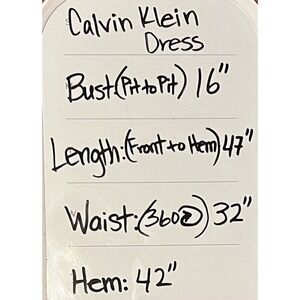 Calvin Klein
Dress
Bust:(Pit to Pit) 16"
Length:(Front to Hem) 47"
Waist:(360) 32"
Hem: 42"